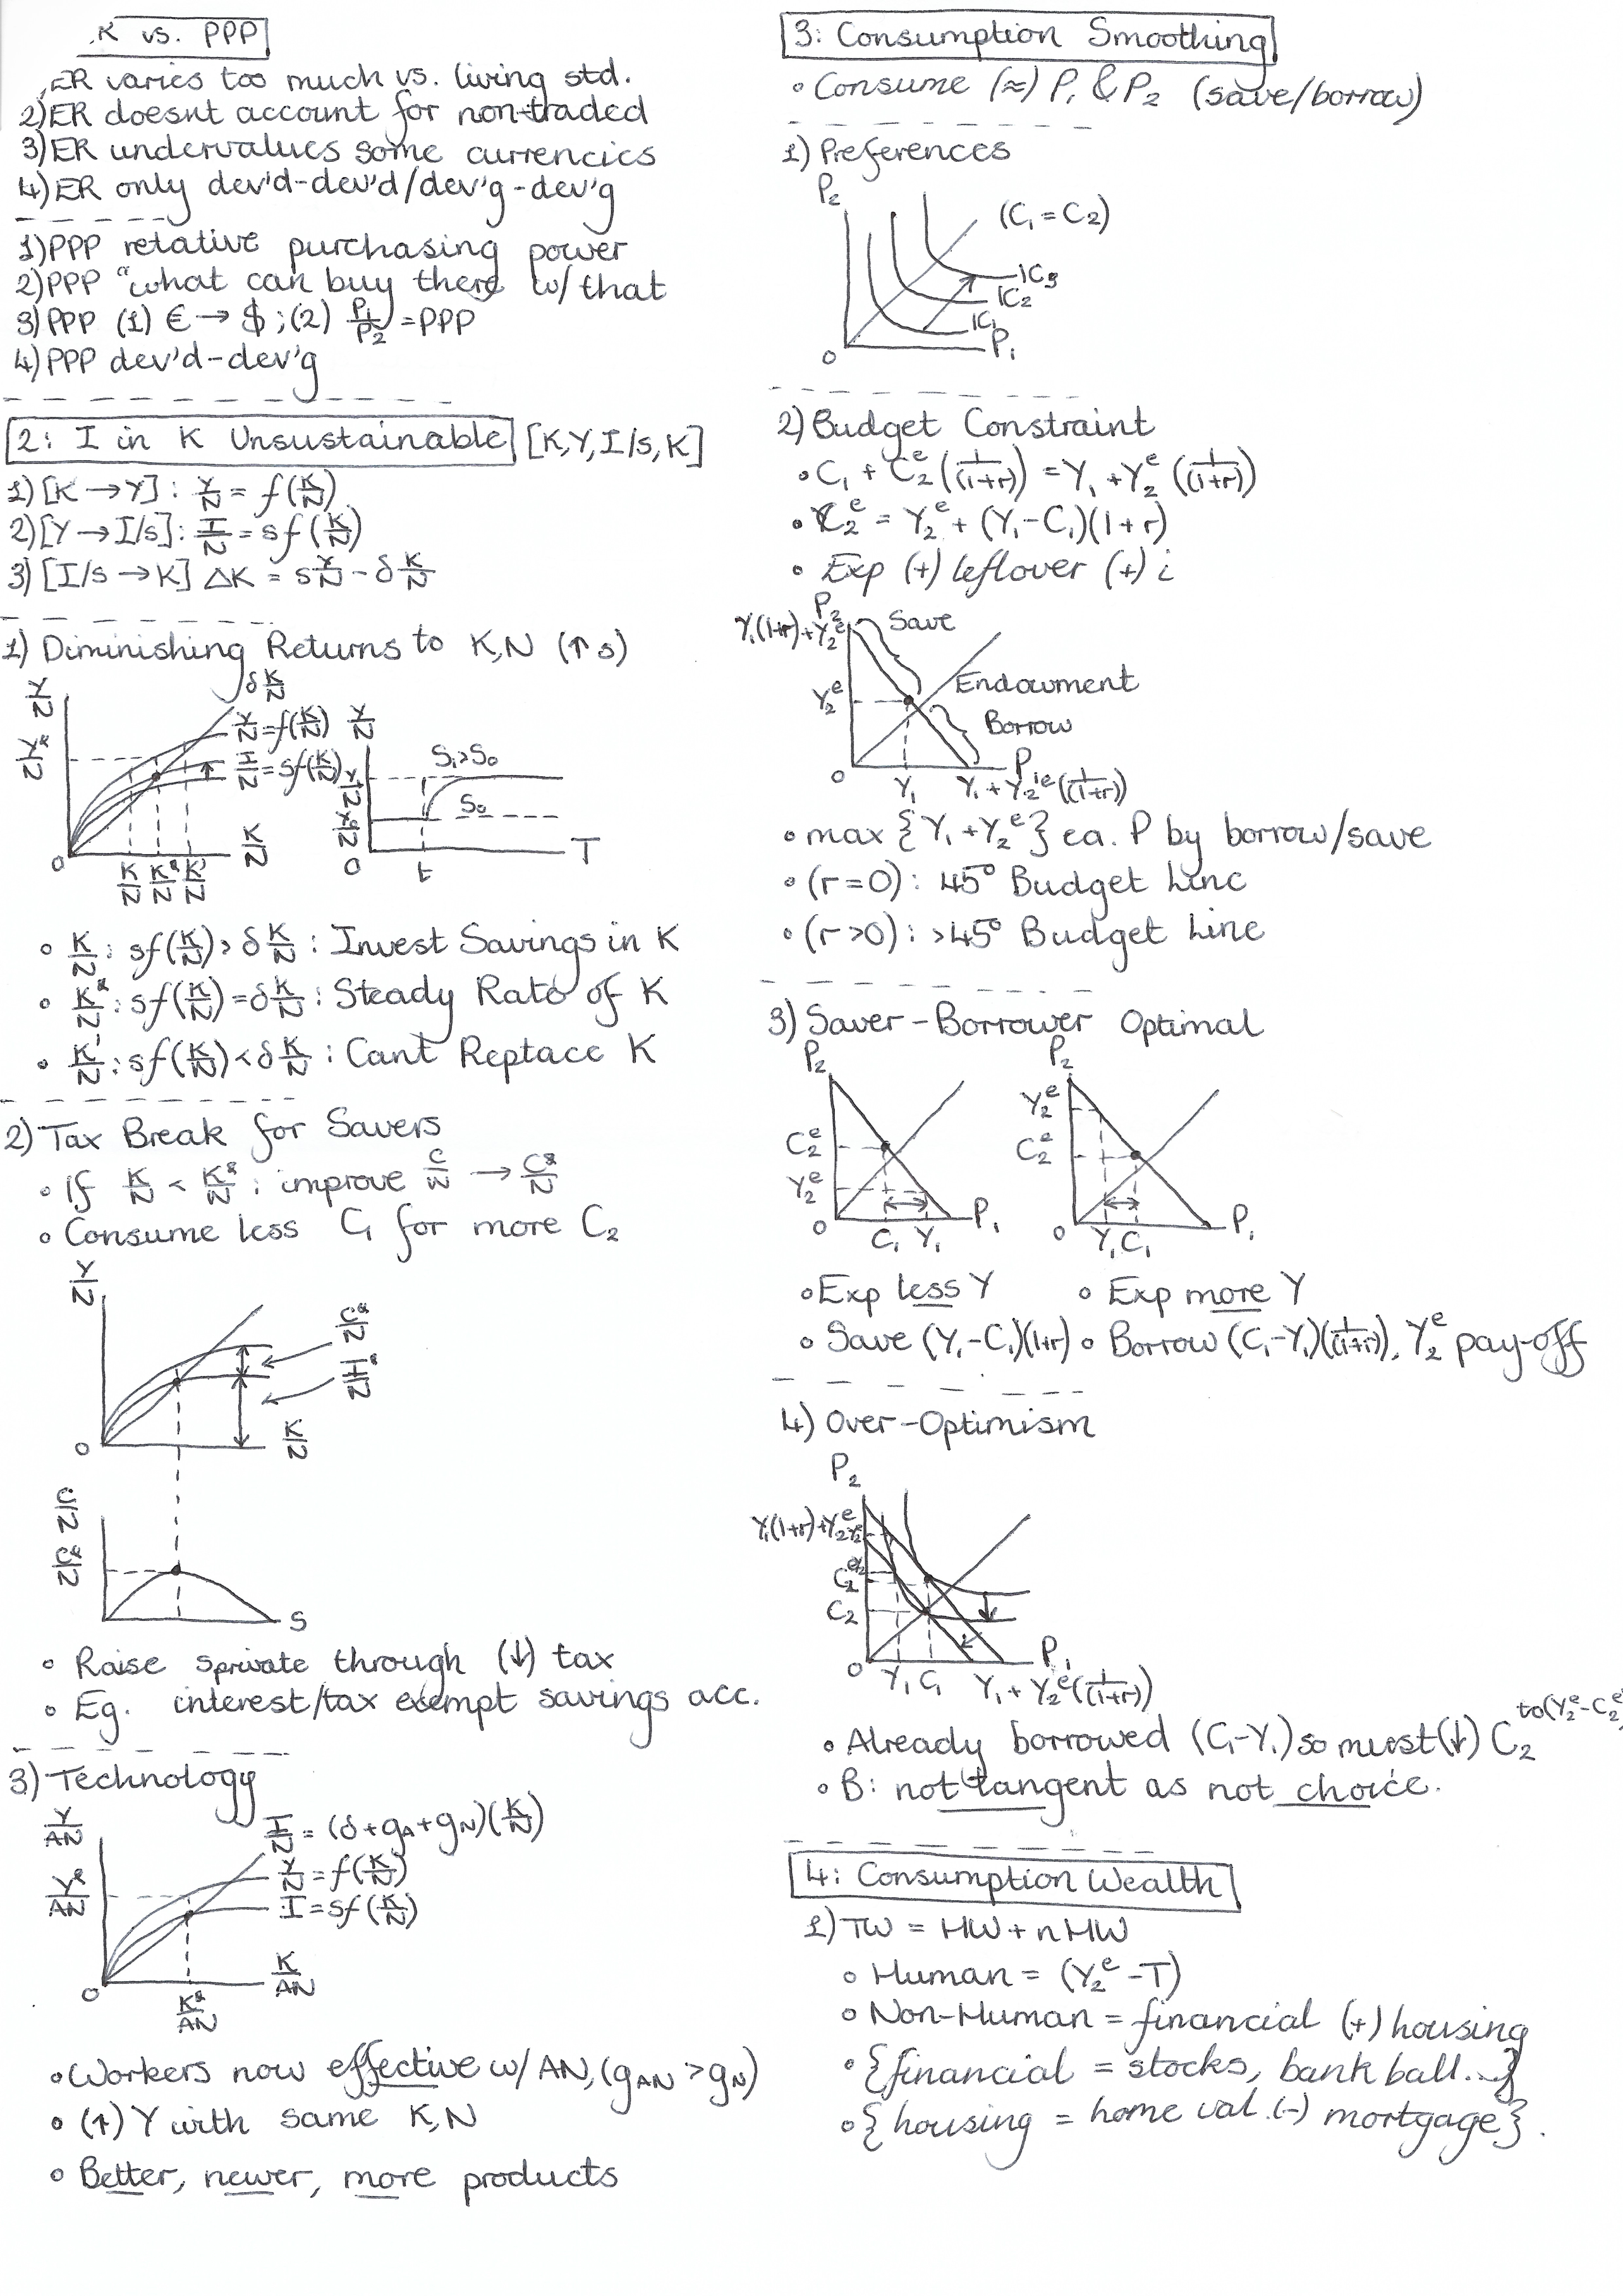 K vs. PPP
ER varies too much vs. living std.
2) ER doesnt account for non-traded
3) ER undervalues some currencies
4) ER only dev'd-dev'd/dev'g-dev'g
1) PPP relative purchasing power
2) PPP "what can buy there w/ that
3) PPP (1) € → $; (2) P₁/P₂ = PPP
4) PPP dev'd-dev'g
2: I in K Unsustainable [K,Y,I/s,K]
1) [K → Y]: Y/N = f(K/N)
2) [Y → I/s]: I/N = sf(K/N)
3) [I/s → K] ΔK = sY/N - δK/N
1) Diminishing Returns to K,N (↑ s)
Y/N
δK/N
Y/N = f(K/N)
Y*/N
I/N = sf(K/N)
K/N
0
K/N K*/N K/N
Y/N
S₁>S₀
S₀
T
0
t
• K/N: sf(K/N) > δK/N: Invest Savings in K
• K*/N: sf(K/N) = δK/N: Steady Rate of K
• K/N: sf(K/N) < δK/N: Cant Replace K
2) Tax Break for Savers
• If K/N < K*/N: improve C/N → C*/N
• Consume less C₁ for more C₂
Y/N
C*/N
I*/N
K/N
0
C/N
C*/N
S
• Raise sprivate through (↓) tax
• Eg. interest/tax exempt savings acc.
3) Technology
Y/AN
I/N = (δ+gA+gN)(K/N)
Y/N = f(K/N)
Y*/AN
I = sf(K/N)
K/AN
0
K*/AN
• Workers now effective w/ AN, (gAN > gN)
• (↑) Y with same K,N
• Better, newer, more products
3: Consumption Smoothing
• Consume (≈) P₁ & P₂ (save/borrow)
1) Preferences
P₂
(C₁ = C₂)
IC₃
IC₂
IC₁
P₁
0
2) Budget Constraint
• C₁ + C₂ᵉ (1/(1+r)) = Y₁ + Y₂ᵉ (1/(1+r))
• C₂ᵉ = Y₂ᵉ + (Y₁-C₁)(1+r)
• Exp (+) leftover (+) i
P₂
Y₁(1+r)+Y₂ᵉ
Save
Y₂ᵉ
Endowment
Borrow
P₁
0
Y₁
Y₁+Y₂ᵉ(1/(1+r))
• max {Y₁+Y₂ᵉ} ea. P by borrow/save
• (r=0): 45° Budget Line
• (r>0): >45° Budget Line
3) Saver-Borrower Optimal
P₂
C₂ᵉ
Y₂ᵉ
0
C₁ Y₁
P₁
P₂
Y₂ᵉ
C₂ᵉ
0
Y₁ C₁
P₁
• Exp less Y
• Exp more Y
• Save (Y₁-C₁)(1+r)
• Borrow (C₁-Y₁)(1/(1+r)), Y₂ᵉ pay-off
4) Over-Optimism
P₂
Y₁(1+r)+Y₂ᵉ
C₂ᵉ
C₂
0
Y₁ C₁
Y₁+Y₂ᵉ(1/(1+r))
P₁
• Already borrowed (C₁-Y₁) so must (↓) C₂ to (Y₂ᵉ-C₂ᵉ
• B: not tangent as not choice.
4: Consumption Wealth
1) TW = HW + nHW
• Human = (Y₂ᵉ - T)
• Non-Human = financial (+) housing
• {financial = stocks, bank ball..}
• {housing = home val.(-) mortgage}.